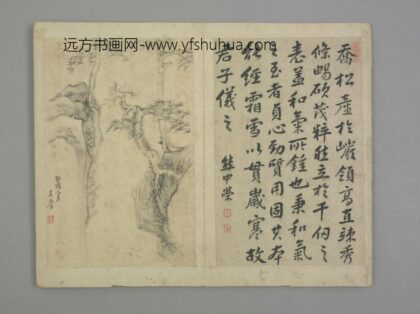 远方书画网-www.yfshuhua.com
喬松產於巖領高直疎秀
條暢碩茂粹然立於千仞之
表蓋和氣所鍾也秉和氣
之至者貞心勁質用固其本
經霜雪以貫歲寒故
君子儀之